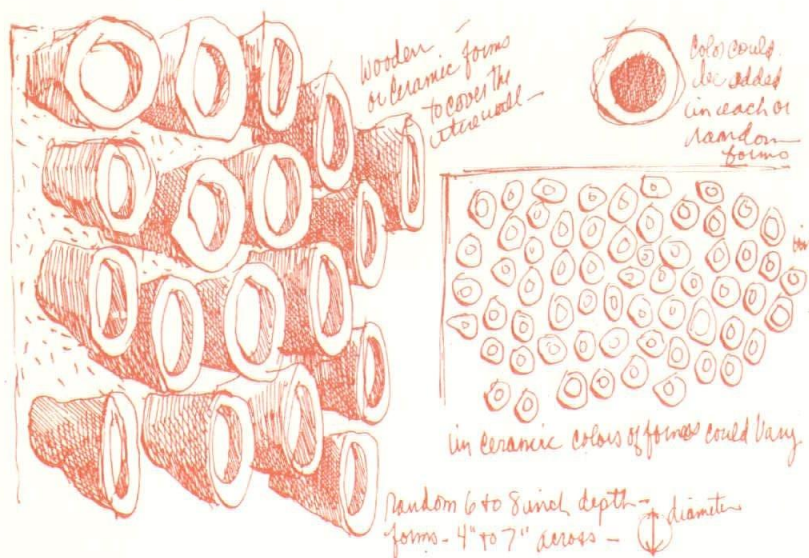 Wooden
or Ceramic forms
to cover the
entire wall –
Color could
be added
in each or
random
forms
in ceramic colors of forms could vary
random 6 to 8 inch depth –
forms – 4" to 7" across –
diameter